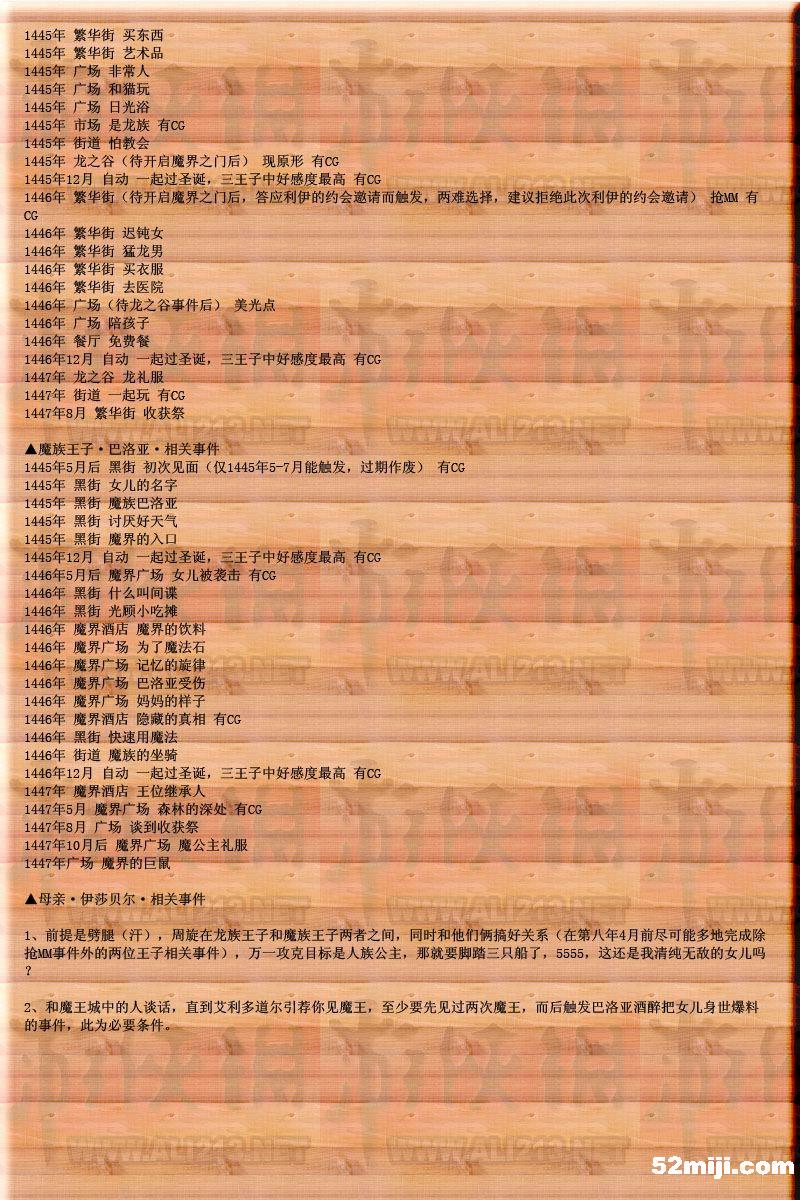 1445年 繁华街 买东西
1445年 繁华街 艺术品
1445年 广场 非常人
1445年 广场 和猫玩
1445年 广场 日光浴
1445年 市场 是龙族 有CG
1445年 街道 怕教会
1445年 龙之谷（待开启魔界之门后） 现原形 有CG
1445年12月 自动 一起过圣诞，三王子中好感度最高 有CG
1446年 繁华街（待开启魔界之门后，答应利伊的约会邀请而触发，两难选择，建议拒绝此次利伊的约会邀请） 抢MM 有
CG
1446年 繁华街 迟钝女
1446年 繁华街 猛龙男
1446年 繁华街 买衣服
1446年 繁华街 去医院
1446年 广场（待龙之谷事件后） 美光点
1446年 广场 陪孩子
1446年 餐厅 免费餐
1446年12月 自动 一起过圣诞，三王子中好感度最高 有CG
1447年 龙之谷 龙礼服
1447年 街道 一起玩 有CG
1447年8月 繁华街 收获祭
▲魔族王子·巴洛亚·相关事件
1445年5月后 黑街 初次见面（仅1445年5-7月能触发，过期作废） 有CG
1445年 黑街 女儿的名字
1445年 黑街 魔族巴洛亚
1445年 黑街 讨厌好天气
1445年 黑街 魔界的入口
1445年12月 自动 一起过圣诞，三王子中好感度最高 有CG
1446年5月后 魔界广场 女儿被袭击 有CG
1446年 黑街 什么叫间谍
1446年 黑街 光顾小吃摊
1446年 魔界酒店 魔界的饮料
1446年 魔界广场 为了魔法石
1446年 魔界广场 记忆的旋律
1446年 魔界广场 巴洛亚受伤
1446年 魔界广场 妈妈的样子
1446年 魔界酒店 隐藏的真相 有CG
1446年 黑街 快速用魔法
1446年 街道 魔族的坐骑
1446年12月 自动 一起过圣诞，三王子中好感度最高 有CG
1447年 魔界酒店 王位继承人
1447年5月 魔界广场 森林的深处 有CG
1447年8月 广场 谈到收获祭
1447年10月后 魔界广场 魔公主礼服
1447年广场 魔界的巨鼠
▲母亲·伊莎贝尔·相关事件
1、前提是劈腿（汗），周旋在龙族王子和魔族王子两者之间，同时和他们俩搞好关系（在第八年4月前尽可能多地完成除
抢MM事件外的两位王子相关事件），万一攻克目标是人族公主，那就要脚踏三只船了，5555，这还是我清纯无敌的女儿吗
？
2、和魔王城中的人谈话，直到艾利多道尔引荐你见魔王，至少要先见过两次魔王，而后触发巴洛亚酒醉把女儿身世爆料
的事件，此为必要条件。
52miji.com